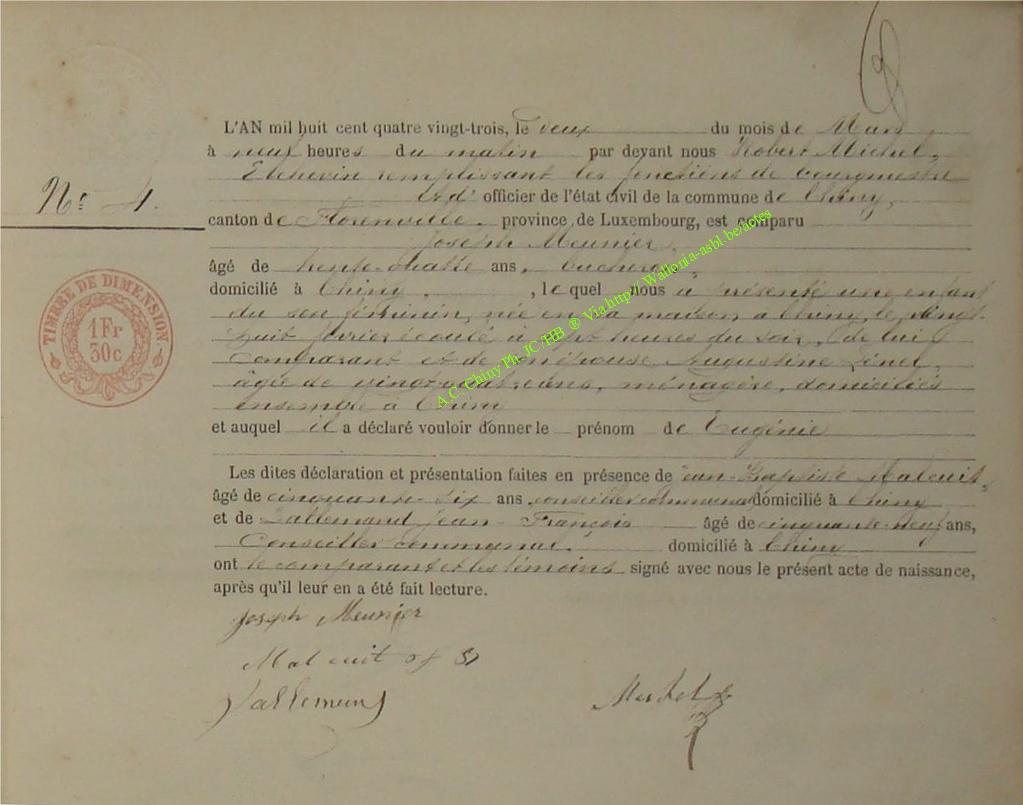 L'AN mil huit cent quatre vingt-trois, le deux du mois de Mars
à neuf heures du matin par devant nous Robert Michel,
Echevin remplissant les fonctions de bourgmestre
et d' officier de l'état civil de la commune de Chiny,
canton de Florenville, province de Luxembourg, est comparu
Joseph Meunier,
âgé de trente-quatre ans, bucheron,
domicilié à Chiny, , lequel nous a présenté une enfant
du sexe féminin, née en sa maison à Chiny, le vingt-
huit février écoulé à sept heures du soir, de lui
comparant et de son épouse Augustine
âgée de ans, ménagère, domiciliés
ensemble à Chiny
et auquel il a déclaré vouloir donner le prénom de Eugénie
Les dites déclaration et présentation faites en présence de Jean-Baptiste Malcuit,
âgé de cinquante-six ans, conseiller communal domicilié à Chiny
et de Lallemand Jean-François âgé de cinquante-neuf ans,
Conseiller communal, domicilié à Chiny
ont le comparant et les témoins signé avec nous le présent acte de naissance,
après qu'il leur en a été fait lecture.
Joseph Meunier
Malcuit
Lallemand
Michel R.
No 4.
TIMBRE DE DIMENSION.
1Fr
30c
A.C. Chiny Ph. JC.HB. ® Via http// Wallonia-asbl.be/actes